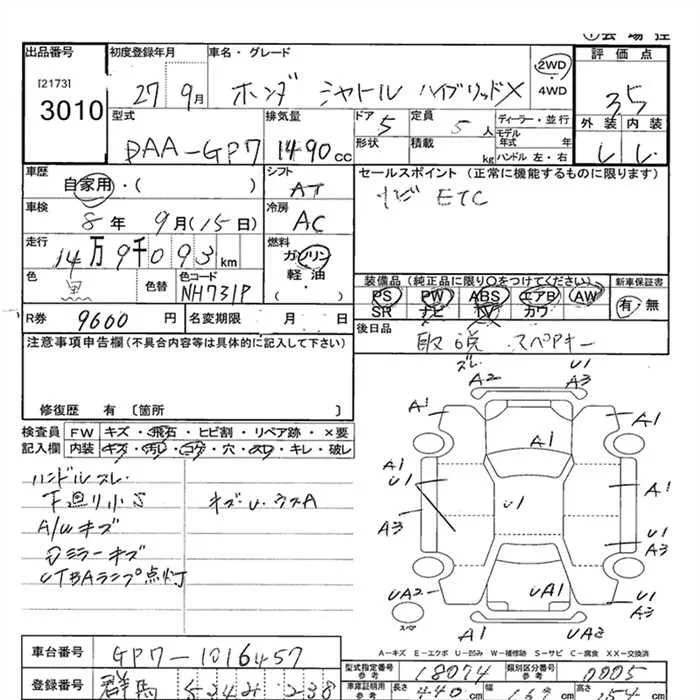 出品番号 初度登録年月 車名・グレード 2WD 評価点
[2173] 3010 27 9月 ホンダ シャトル ハイブリッドX 4WD 35
型式 排気量 ドア 5 定員 5人 ディーラー・並行 外装 内装
DAA-GP7 1490cc 形状 積載 kg モデル年式 年 ハンドル 左・右
車歴 シフト セールスポイント (正常に機能するものに限ります)
自家用・( ) AT ナビ ETC
車検 8年 9月(15日) 冷房 AC
走行 14万9千093km 燃料 ガソリン
軽油
( )
色 黒 色替 色コード NH731P
装備品 (純正品に限り○をつけてください) 新車保証書
PS PW ABS エアB AW 有・無
SR ナビ TV カワ
R券 9600円 名変期限 月 日 後日品 取説 スペアキー
注意事項申告欄(不具合内容等は具体的に記入して下さい)
修復歴 有 〔箇所 〕
検査員 FW キズ・飛石・ヒビ割・リペア跡・×要
記入欄 内装 キズ・汚れ・コゲ・穴・スレ・キレ・破レ
ハンドルスレ
下廻り小S キズU・ウスA
A/Wキズ
Dミラーキズ
VTBAランプ点灯
ズレ U1
A2 A3
A1 A1
A1
A1
U1 U1 A1
A3 U1
A3
UA2 UA1 U1
A3
U1 UA2
スペア
A-キズ E-エクボ U-凹み W-補修跡 S-サビ C-腐食 XX-交換済
車台番号 GP7-1016457
型式指定番号 参考 18074 類別区分番号 参考 0005
登録番号 群馬 238
車庫証明用 参考 長さ 440cm 幅 169cm 高さ 154cm